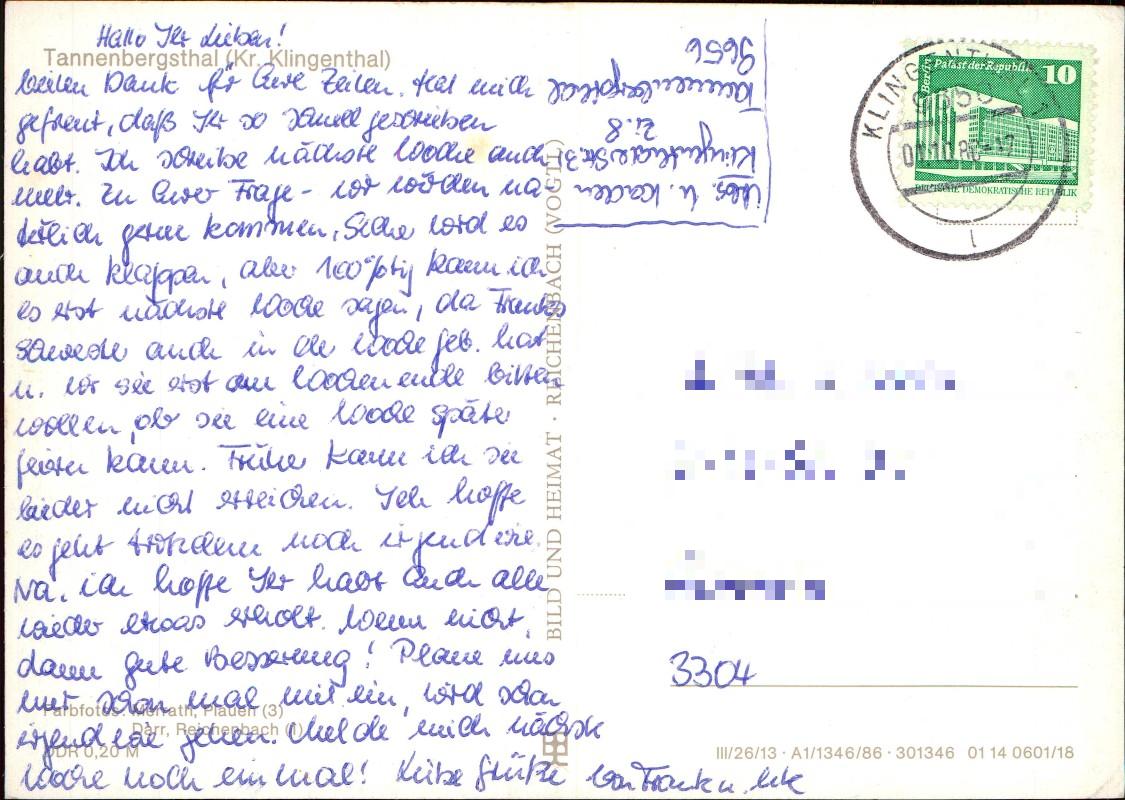 Hallo Ihr Lieben!
Tannenbergsthal (Kr. Klingenthal)
Vielen Dank für Eure Zeilen. Hat mich
gefreut, daß Ihr so schnell geschrieben
habt. Ich schreibe nächste Woche auch
mehr. Zu Eurer Frage - wir würden na-
türlich gerne kommen. Sicher wird es
auch klappen, aber 100%tig kann ich
es erst nächste Woche sagen, da Franks
Schwester auch in der Woche geb. hat
u. wir sie erst am Wochenende bitten
wollen, ob sie eine Woche später
feiern kann. Früher kann ich sie
leider nicht erreichen. Ich hoffe
es geht trotzdem noch irgendwie.
Na, ich hoffe Ihr habt Euch alle
wieder etwas erholt. Wenn nicht,
dann gute Besserung! Plane uns
nur schon mal mit ein, wird schon
irgendwie gehen. Melde mich nächste
Woche noch einmal! Liebe Grüße von Frank u.
Farbfotos: Morrath, Plauen (3)
Darr, Reichenbach (1)
DDR 0,20 M
BILD UND HEIMAT · REICHENBACH (VOGTL)
Abs. u.
Klingenthaler Str. 31
Zi. 8
Tannenbergsthal
9656
Berlin Palast der Republik
10
DEUTSCHE DEMOKRATISCHE REPUBLIK
KLINGENTHAL
3304
III/26/13 · A1/1346/86 · 301346 01 14 0601/18